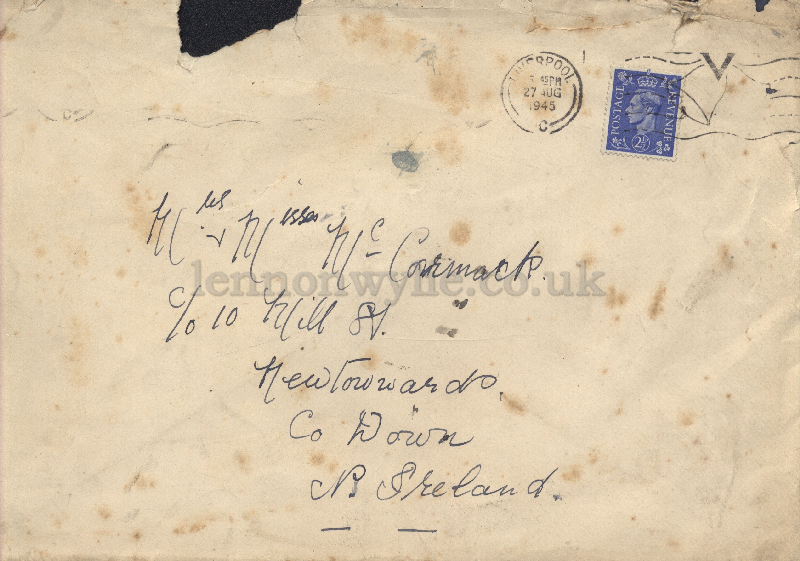 LIVERPOOL
45 PM
27 AUG
1945
C
POSTAGE REVENUE
2½
Mrs & Misses McCormack.
lennonwylie.co.uk
c/o 10 Mill St.
Newtownards.
Co Down
N. Ireland.